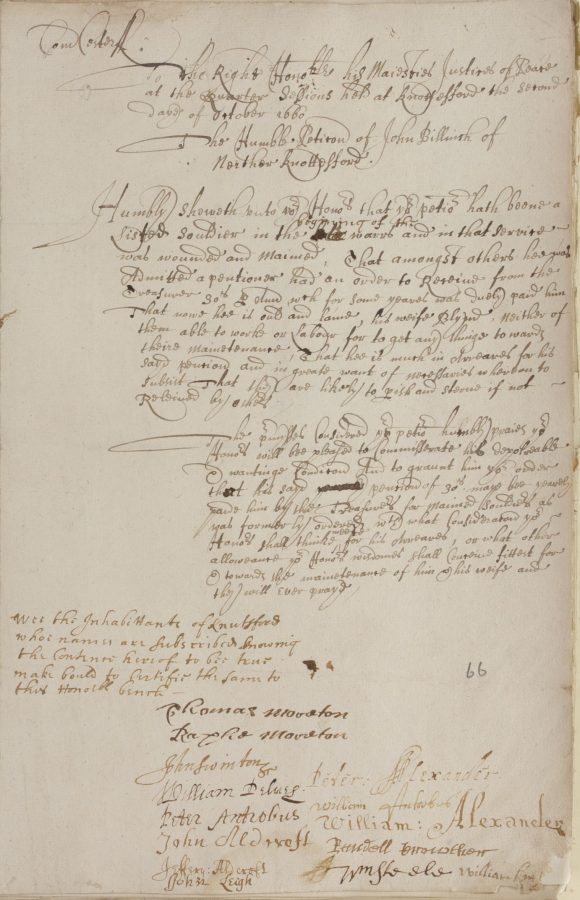 Com Cestr:
To the Right Honoble his Maiesties Justices of Peace
at the Quarter Sessions held at Knottesford the second
daye of October 1660
The Humble Peticon of John Billinch of
Neither Knottesford.
Humbly sheweth unto yor Honors that yor petior hath beene a
Listed Souldier in the beginning of the warrs and in that service
was wounded and maimed, That amongst others hee was
Admitted a pentioner had an order to Receive from the
Treasurer 30s P Annu wch for some yeares was duely paid him
That nowe hee is ould and lame, his weife Blynd, Neither of
them able to worke or Labour for to get any thinge towards
theire maintenance, That hee is much in Arreares for his
said pention and in greate want of necessaries wherbon to
subsist That they are likely to pish and sterve if not
Releived by others
The premisses Considered yor petior humbly praies yor
Honors will bee pleased to Commisserate his deplorable
& wantinge Condicon And to graunt him yor order
that his said pention of 30s maye bee yearely
paide him by the Treasurers for Maimed Souldiers as
was formerly ordered wth what Consideracon yor
Honors shall thinke meete for his Arreares, or what other
alloweance yor Honors wisdomes shall Conceive fittest for
& towards the maintenance of him & his weife and
they will Ever praye
Wee the Inhabittants of Knutsford
whose names are subscribed knowing
the Contence hereof to bee true
make bould to Certifie the same to
this Honoble bench
66
Thomas Moreton
Raphe Moreton
John Swinton
William Delves Peter: Alexander
Peter Antrobus William Antrobus
John Aldcroft William: Alexander
Randell
Jeffery: Aldcroft Wm Steele William
John Leigh